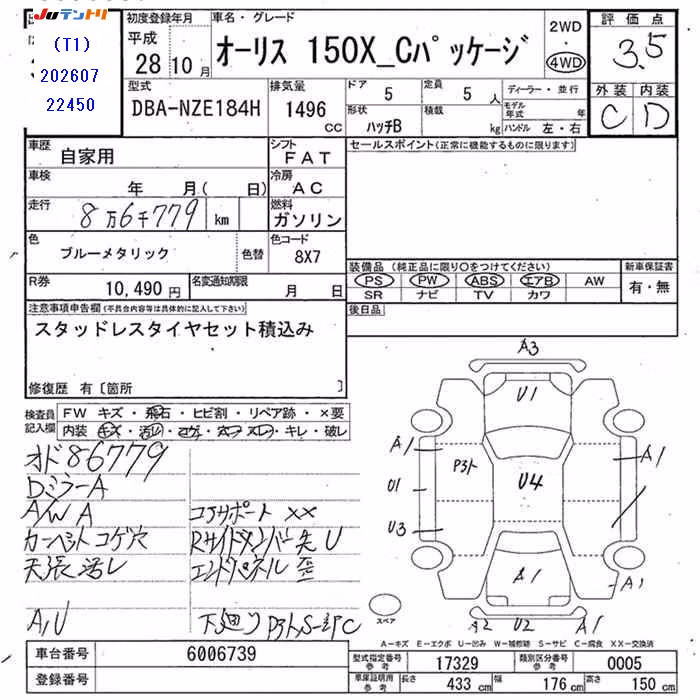 JUテントリ
(T1)
202607
22450
初度登録年月
平成
28 10 月
車名・グレード
オーリス 150X_Cパッケージ
2WD
・
4WD
評価点
3.5
外装 内装
C D
型式
DBA-NZE184H
排気量
1496
CC
ドア
5
定員
5 人
形状
ハッチB
積載
kg
ディーラー・並行
モデル年式 年
ハンドル 左・右
車歴
自家用
シフト
FAT
車検
年 月( 日)
冷房
AC
走行
8万6千779 km
燃料
ガソリン
色
ブルーメタリック
色替
色コード
8X7
R券
10,490 円
名変通知期限
月 日
セールスポイント(正常に機能するものに限ります)
装備品(純正品に限り○をつけてください)
PS PW ABS エアB AW
SR ナビ TV カワ
新車保証書
有・無
後日品
注意事項申告欄(不具合内容等は具体的に記入して下さい)
スタッドレスタイヤセット積込み
修復歴 有〔箇所 〕
検査員記入欄
FW キズ・飛石・ヒビ割・リペア跡・×要
内装・キズ・汚レ・コゲ・穴・スレ・キレ・破レ
オド86779
Dミラー A
A/W A
カーペットコゲ穴
天張汚レ
A,U
コアサポート ××
エンドパネル 歪
A3
U1
A1
P3ト
U1
U4
A1
U3
A1
A1
A2 U2
スペア
A-キズ E-エクボ U-凹み W-補修跡 S-サビ C-腐食 XX-交換済
車台番号
6006739
登録番号
型式指定番号 参考
17329
類別区分番号 参考
0005
車庫証明寸法 参考
長さ 433 cm
幅 176 cm
高さ 150 cm